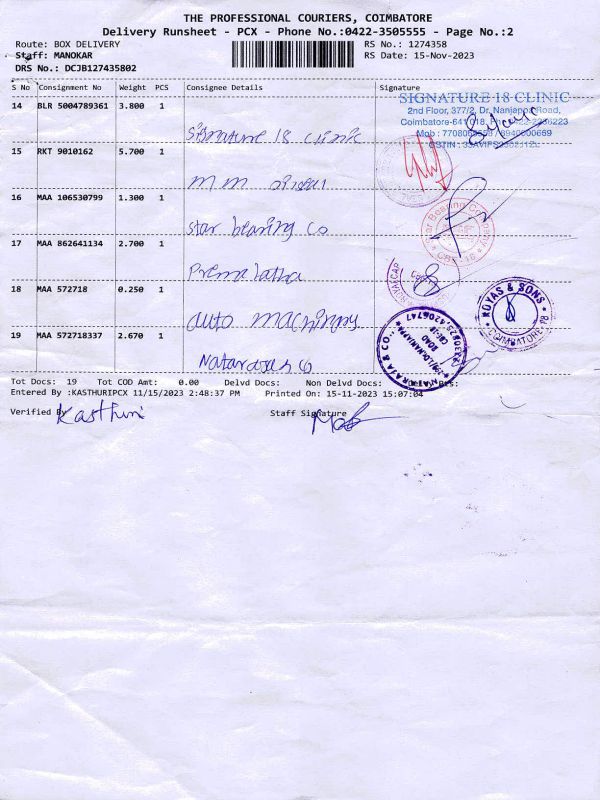 THE PROFESSIONAL COURIERS, COIMBATORE
Delivery Runsheet - PCX - Phone No.:0422-3505555 - Page No.:2
Route: BOX DELIVERY RS No.: 1274358
Staff: MANOKAR RS Date: 15-Nov-2023
DRS No.: DCJB127435802
S No Consignment No Weight PCS Consignee Details Signature
14 BLR 5004789361 3.800 1 Signature 18 clinic
SIGNATURE 18 CLINIC
2nd Floor, 377/2, Dr. Nanjappa Road,
Coimbatore-641 018.
15 RKT 9010162 5.700 1 mm
16 MAA 106530799 1.300 1 star bearing co
Star Bearing Company
CBE-18
17 MAA 862641134 2.700 1 Prema latha
18 MAA 572718 0.250 1 auto machinery
ROYAS & SONS
COIMBATORE
19 MAA 572718337 2.670 1 Nataraja & co
NATARAJA & CO.
Tot Docs: 19 Tot COD Amt: 0.00 Delvd Docs: Non Delvd Docs:
Entered By :KASTHURIPCX 11/15/2023 2:48:37 PM Printed On: 15-11-2023 15:07:04
Verified By Kasthuri Staff Signature